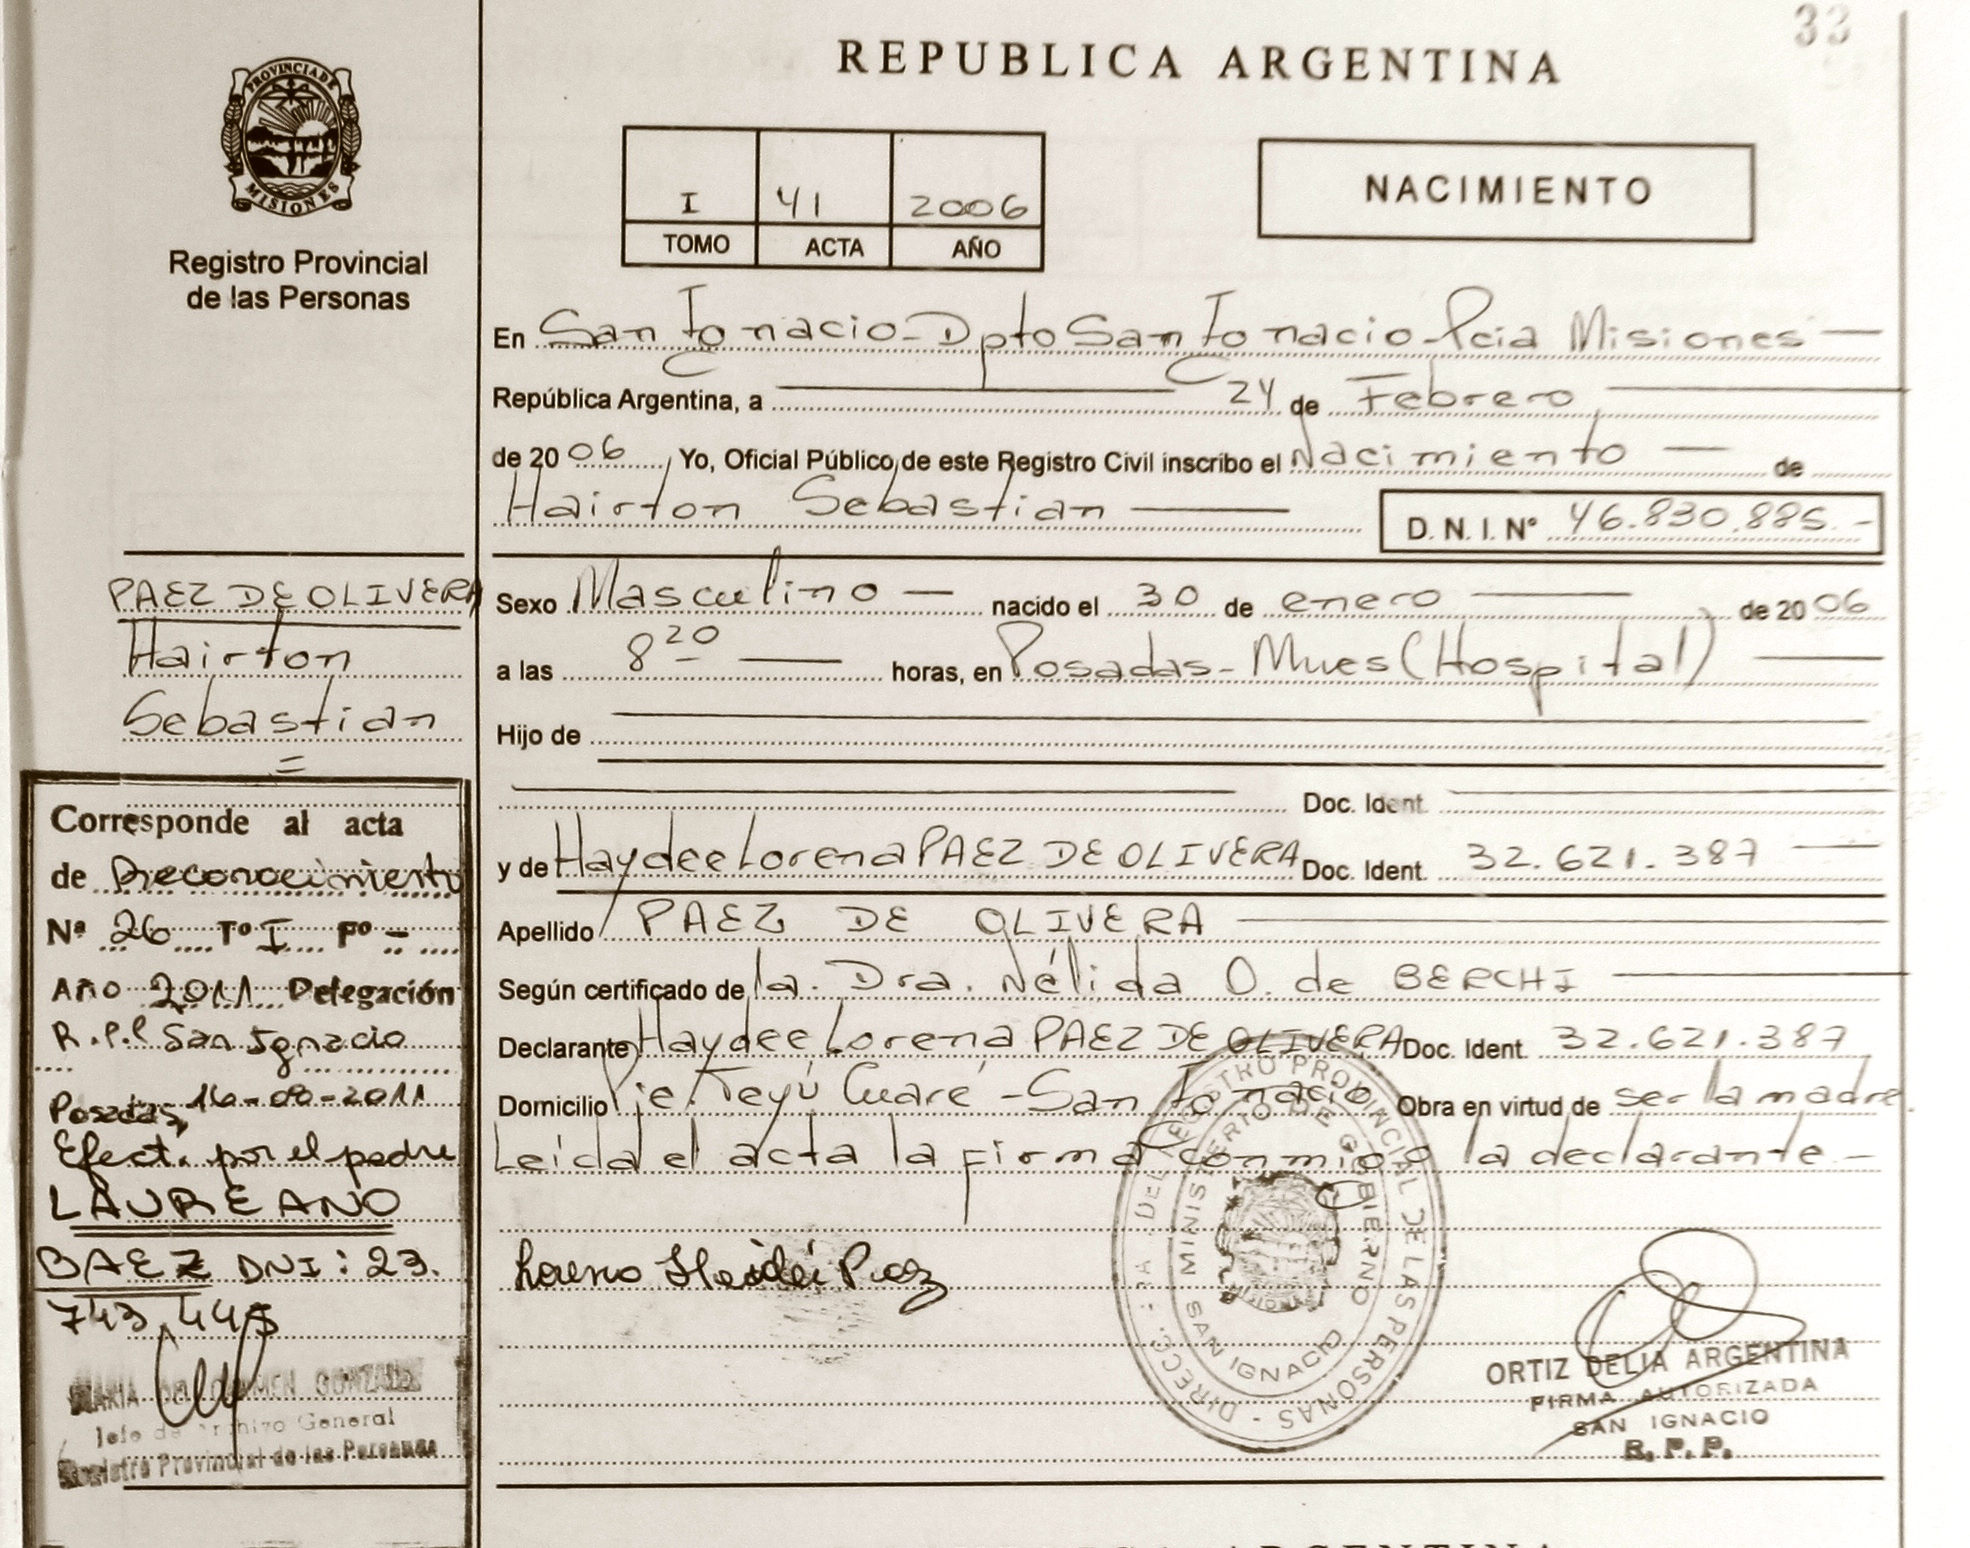 33
REPUBLICA ARGENTINA
PROVINCIA DE
MISIONES
Registro Provincial
de las Personas
I 41 2006
TOMO ACTA AÑO
NACIMIENTO
En San Ignacio - Dpto San Ignacio Pcia Misiones
República Argentina, a 24 de Febrero
de 2006, Yo, Oficial Público de este Registro Civil inscribo el Nacimiento de
Hairton Sebastian D. N. I. Nº 46.830.885.-
Sexo Masculino nacido el 30 de enero de 2006
a las 8 20 horas, en Posadas - Mnes (Hospital)
Hijo de
Doc. Ident.
y de Haydee Lorena PAEZ DE OLIVERA Doc. Ident. 32.621.387
Apellido PAEZ DE OLIVERA
Según certificado de la. Dra. Nélida O. de BERCHI
Declarante Haydee Lorena PAEZ DE OLIVERA Doc. Ident. 32.621.387
Domicilio Pje. Teyú Cuaré - San Ignacio Obra en virtud de ser la madre.
Leída el acta la firma conmigo la declarante -
DIRECC. GRA. DEL REGISTRO PROVINCIAL DE LAS PERSONAS
MINISTERIO DE GOBIERNO
SAN IGNACIO
ORTIZ DELIA ARGENTINA
FIRMA AUTORIZADA
SAN IGNACIO
R. P. P.
PAEZ DE OLIVERA
Hairton
Sebastian
=
Corresponde al acta
de Reconocimiento
Nº 26 Tº I Fº -
Año 2011 Delegación
San Ignacio
Posadas, 16-08-2011
Efect. por el padre
LAUREANO
BAEZ DNI: 23.
743.445
MARIA DEL CARMEN GONZALEZ
Jefe de Archivo General
Registro Provincial de las Personas